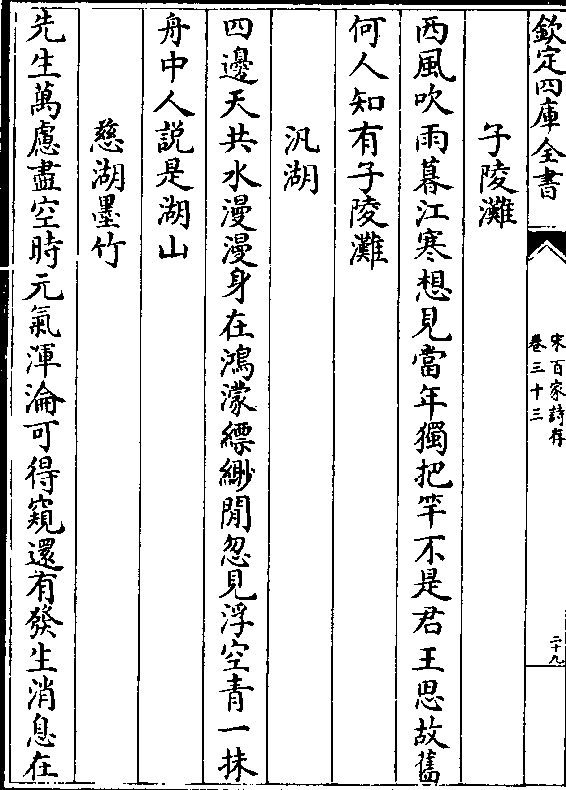 欽定四庫全書
宋百家詩存
卷三十三
二十九
子陵灘
西風吹雨暮江寒想見當年獨把竿不是君王思故舊
何人知有子陵灘
汎湖
四邊天共水漫漫身在鴻濛縹緲間忽見浮空青一抹
舟中人説是湖山
慈湖墨竹
先生萬慮盡空時元氣渾淪可得窺還有發生消息在